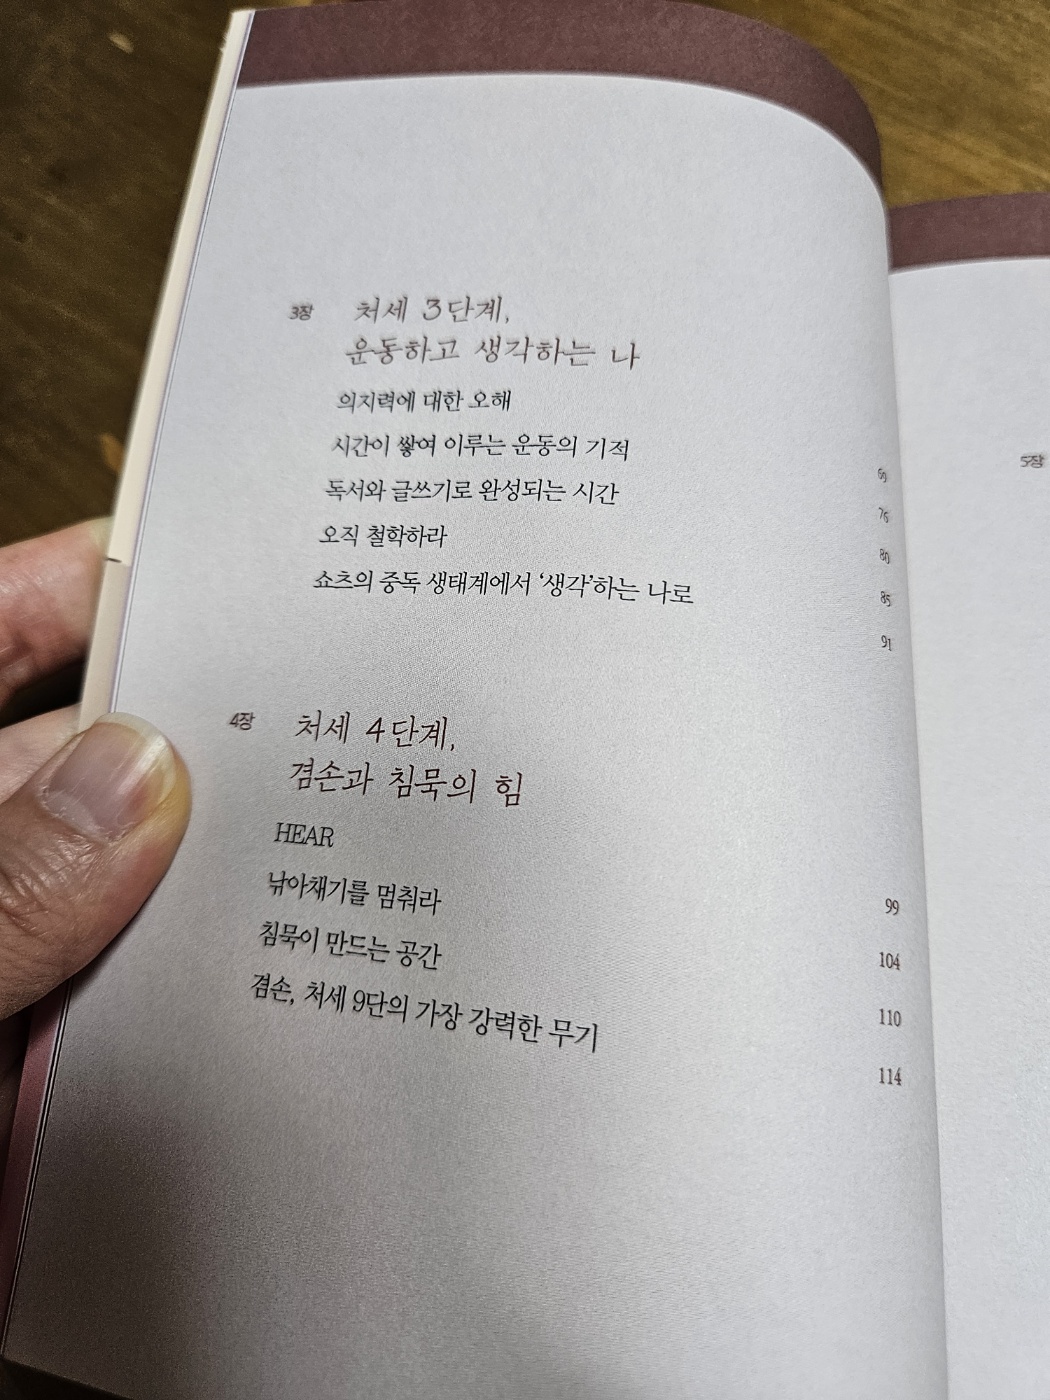 3장 처세 3단계,
운동하고 생각하는 나
의지력에 대한 오해
시간이 쌓여 이루는 운동의 기적 69
독서와 글쓰기로 완성되는 시간 76
오직 철학하라 80
쇼츠의 중독 생태계에서 ‘생각’하는 나로 85
91
4장 처세 4단계,
겸손과 침묵의 힘
HEAR 99
낚아채기를 멈춰라 104
침묵이 만드는 공간 110
겸손, 처세 9단의 가장 강력한 무기 114
5장